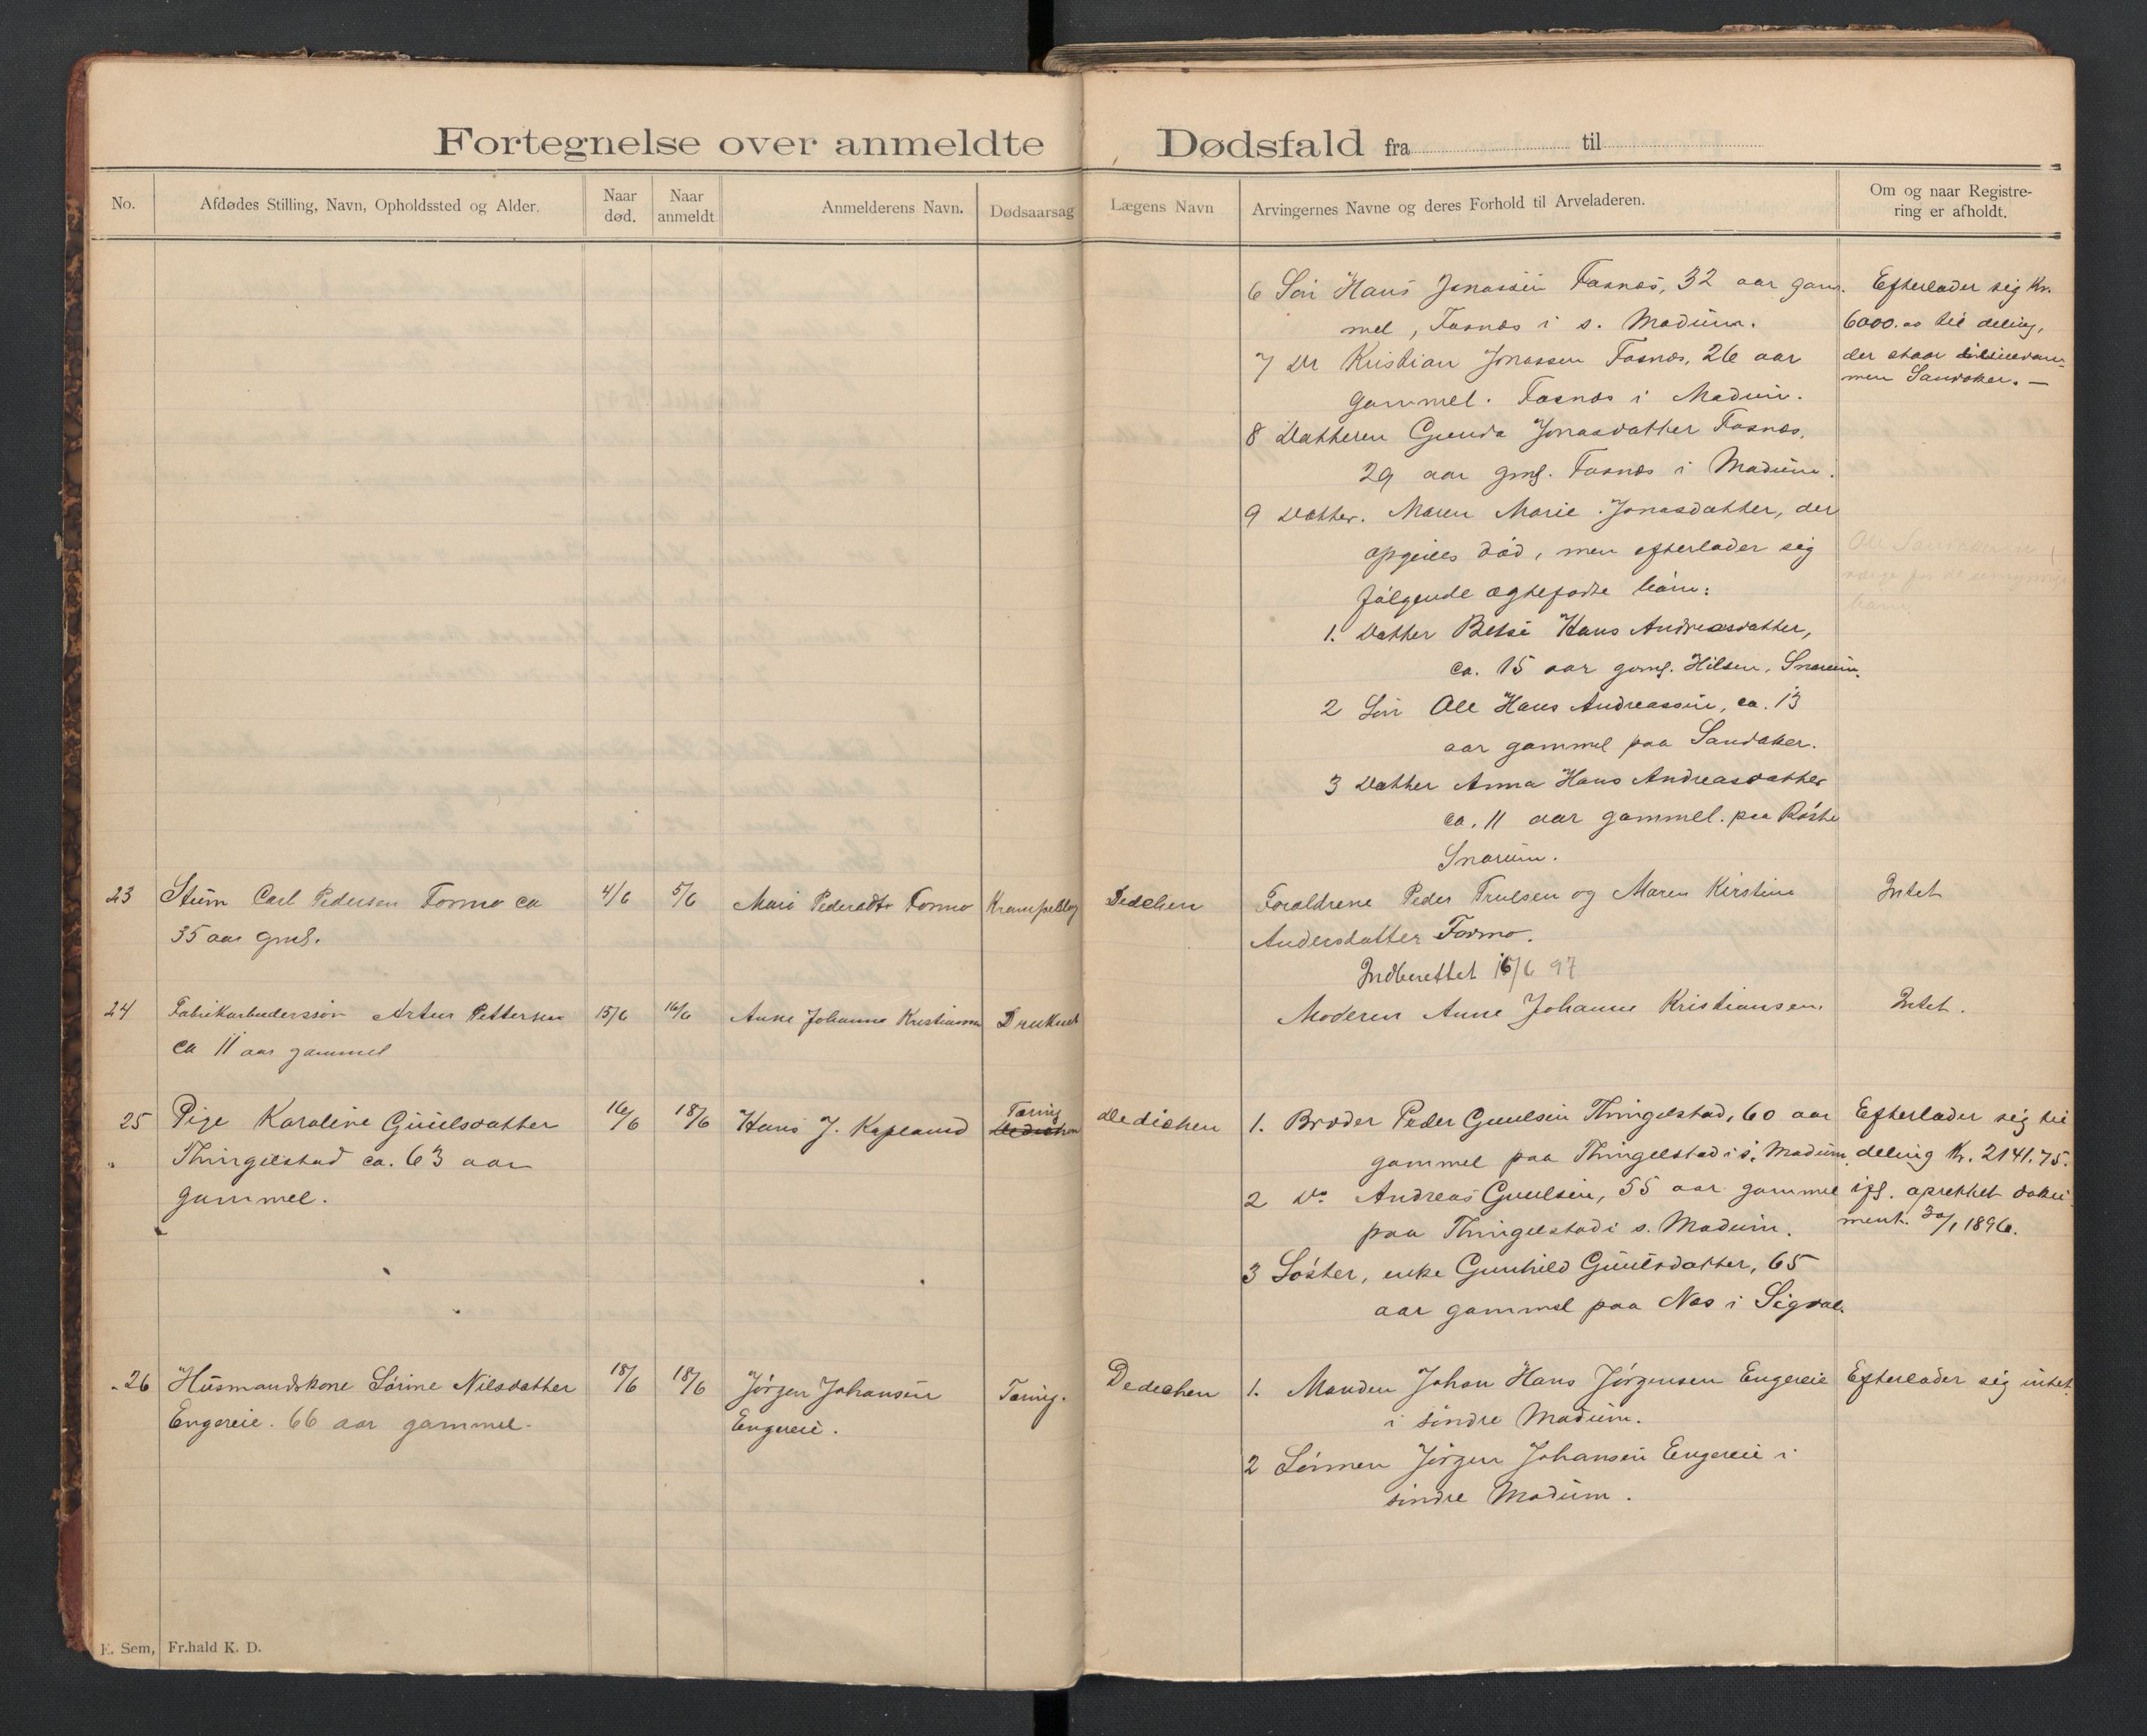 Fortegnelse over anmeldte Dødsfald fra til
No.
Afdødes Stilling, Navn, Opholdssted og Alder.
Naar død.
Naar anmeldt
Anmelderens Navn.
Dødsaarsag
Lægens Navn
Arvingernes Navne og deres Forhold til Arveladeren.
Om og naar Registre-
ring er afholdt.
6 Søn Hans Jonassen Fosnæs, 32 aar gam-
mel, Fosnæs i s. Modum.
7 Do Kristian Jonassen Fosnæs, 26 aar
gammel. Fosnæs i Modum.
8 Datteren Gunda Jonasdatter Fosnæs,
29 aar gml. Fosnæs i Modum.
9 Datter. Maren Marie Jonasdatter, der
opgives død, men efterlader sig
følgende ægtefødte børn:
1. Datter Betsi Hans Andreasdatter,
ca. 15 aar gaml. Hilsen, Snarum.
2 Søn Ole Hans Andreassøn, ca. 13
aar gammel paa Sandaker.
3 Datter Anna Hans Andreasdatter
ca. 11 aar gammel. paa Røste
Snarum.
Efterlader sig Kr.
6000.00 til deling,
der staar
men Sandaker. —
23 Stum Carl Pedersen Formo ca 4/6 5/6 Mari Pedersdtr Formo Krampeslag Dedichen Forældrene Peder Trulsen og Maren Kirstine Intet
35 aar gml. Andersdatter Formo.
Indberettet 16/6 97
24 Fabrikarbeiderssøn Artur Pettersen 15/6 16/6 Anne Johanne Kristiansen Druknet Moderen Anne Johanne Kristiansen. Intet.
ca 11 aar gammel
25 Pige Karoline Guulsdatter 16/6 18/6 Hans J. Kopland Tæring Dedichen Dedichen 1. Broder Peder Guulsen Thingelstad, 60 aar Efterlader sig til
Thingelstad ca. 63 aar gammel paa Thingelstad i s. Modum. deling Kr. 2141.75.
gammel. 2 Do Andreas Guulsen, 55 aar gammel ifl. oprettet doku
paa Thingelstad i s. Modum. ment. 30/1 1896.
3 Søster, enke Gunhild Guulsdatter, 65
aar gammel paa Nes i Sigdal.
26 Husmandskone Sørine Nilsdatter 18/6 18/6 Jørgen Johansen Tæring. Dedichen 1. Manden Johan Hans Jørgensen Engereie Efterlader sig intet.
Engereie. 66 aar gammel. Engereie. i søndre Modum.
2 Sønnen Jørgen Johansen Engereie i
søndre Modum.
E. Sem, Fr.hald K. D.